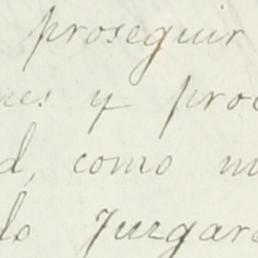 proseguir
nes y proc
d, como m
do Juzgare